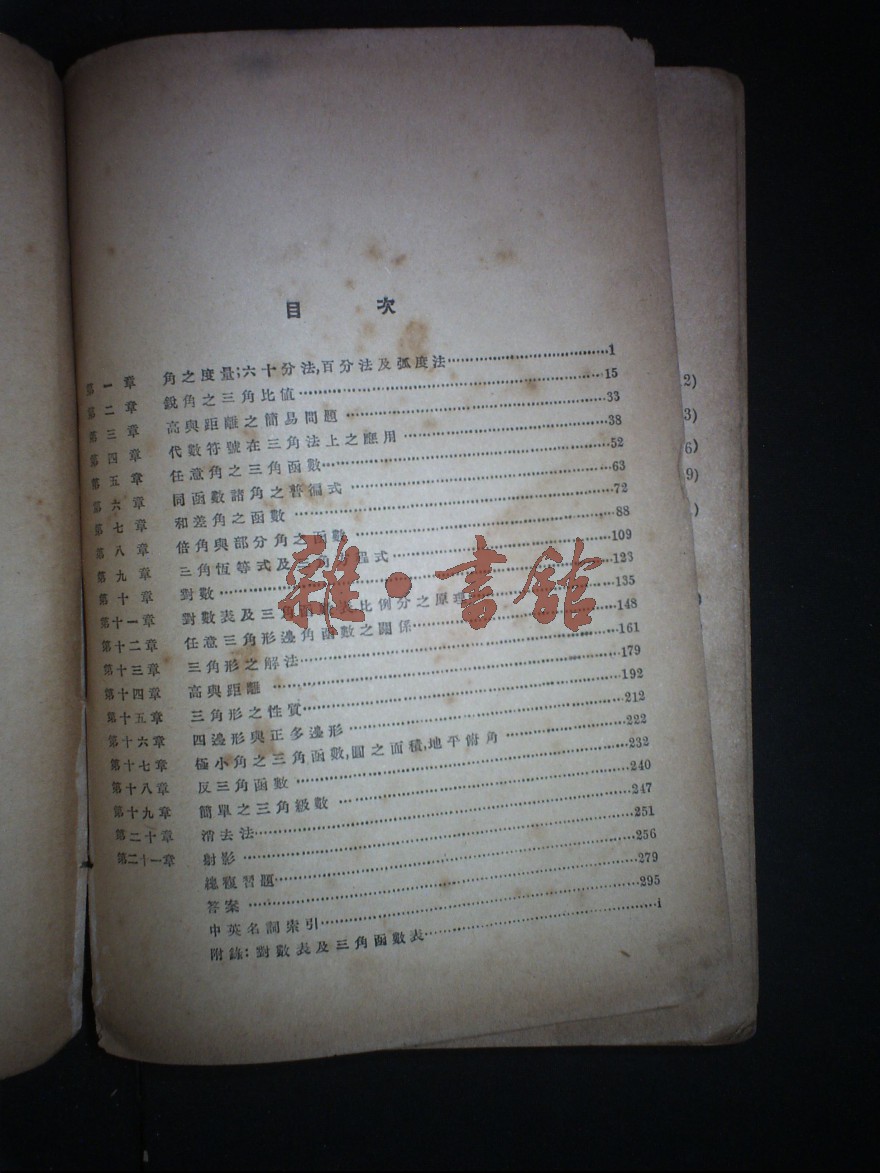 目次
第一章 角之度量;六十分法,百分法及弧度法……1
第二章 銳角之三角比值……15
第三章 高與距離之簡易問題……33
第四章 代數符號在三角法上之應用……38
第五章 任意角之三角函數……52
第六章 同函數諸角之普徧式……63
第七章 和差角之函數……72
第八章 倍角與部分角之函數……88
第九章 三角恆等式及三角方程式……109
第十章 對數……123
第十一章 對數表及三角函數表比例分之原理……135
第十二章 任意三角形邊角函數之關係……148
第十三章 三角形之解法……161
第十四章 高與距離……179
第十五章 三角形之性質……192
第十六章 四邊形與正多邊形……212
第十七章 極小角之三角函數,圓之面積,地平俯角……222
第十八章 反三角函數……232
第十九章 簡單之三角級數……240
第二十章 消去法……247
第二十一章 射影……251
總複習題……256
答案……279
中英名詞索引……295
附錄:對數表及三角函數表……i
雜·書館
2)
3)
6)
9)
)